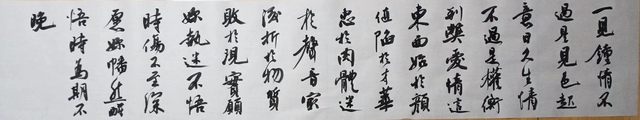 一見鍾情不
過是見色起
意日久生情
不過是權衡
利弊愛情這
東西始於顏
值陷於才華
忠於肉體迷
於聲音最
後折於物質
敗於現實願
妳執迷不悟
時傷不至深
願妳幡然醒
悟時為期不
晚